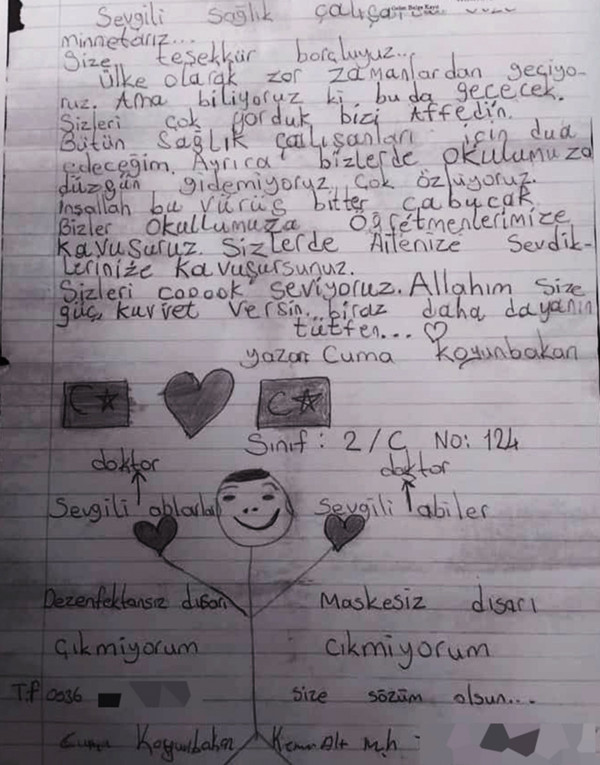 Sevgili Sağlık
minnetarız...
Size teşekkür borçluyuz...
Ülke olarak zor zamanlardan geçiyo-
ruz. Ama biliyoruz ki bu da geçecek.
Sizleri çok yorduk bizi Affedin.
Bütün Sağlık çalışanları için dua
edeceğim. Ayrıca bizlerde okulumuza
düzgün gidemiyoruz çok özlüyoruz.
inşallah bu vürüs bitter çabucak
Bizler Okullumuza Öğretmenlerimize
Kavuşuruz. Sizlerde Ailenize Sevdik-
Lerinize Kavuşursunuz.
Sizleri cooook seviyoruz. Allahım Size
güç, kuvvet versin... biraz daha dayanın
tütfen... ♡
yazan Cuma Koyunbakan
Sınıf: 2/C No: 124
doktor doktor
Sevgili ablarla Sevgili abiler
Dezenfektansız dışarı Maskesiz dışarı
Çıkmiyorum Cıkmiyorum
T.f 0536 size sözüm olsun...
Cuma Koyunbakan Kemer Alt mh